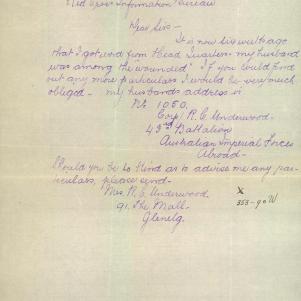 Red Cross Information Bureau
Dear Sirs -
It is now six weeks ago
that I got word from Head Quarters my husband
was among the "wounded" If you could find
out any more particulars I would be very much
obliged - my husbands address is
No 1050.
Corpl R. E. Underwood.
43rd Battalion
Australian Imperial Forces
Abroad -
Should you be so kind as to advise me any par-
ticulars, please send -
Mrs. R. E. Underwood
91. The Mall -
Glenelg.
X
353-90W